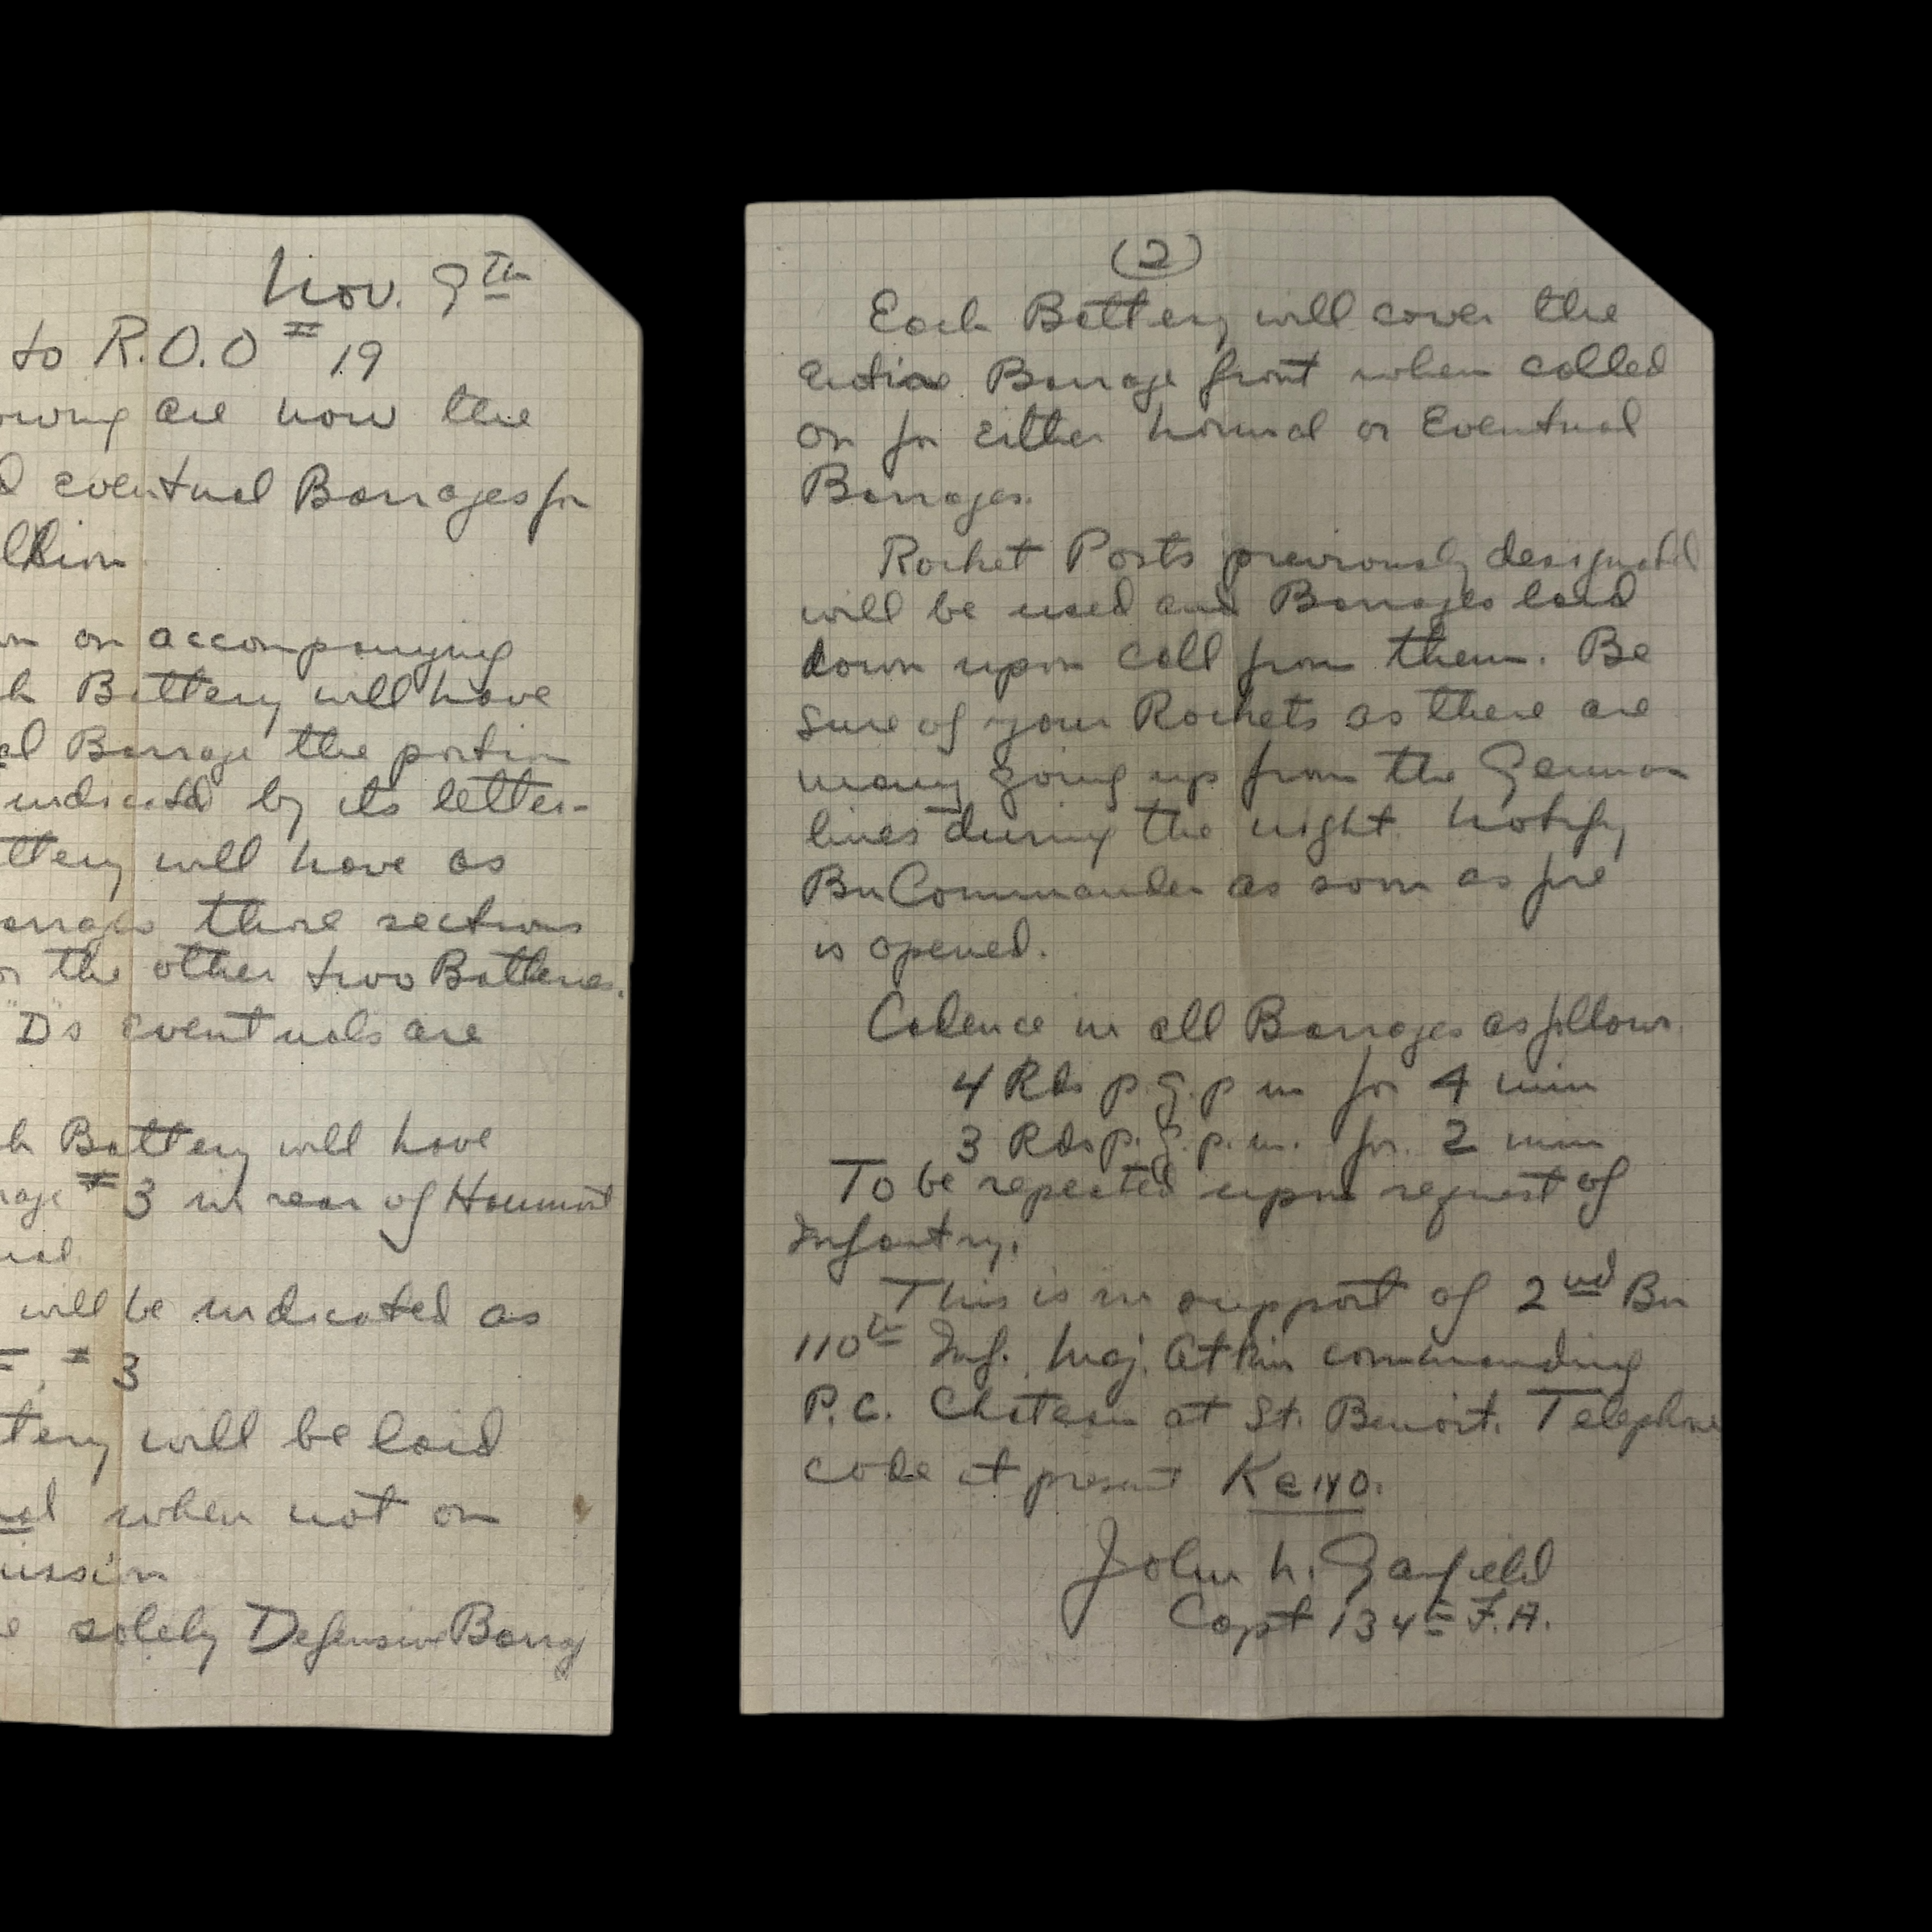 Nov. 9th
to R.O.O # 19
owing are now the
d eventual Barrages for
on accompanying
h Battery will have
al Barrage the portion
indicated by its letter-
ttery will have as
arrages those sections
the other two Batteries.
"D"s eventuals are
h Battery will have
rage # 3 in rear of Haumont
ual
will be indicated as
# 3
tery will be laid
al when not on
ission
e solely Defensive Barrag
(2)
Each Battery will cover the
entire Barrage front when called
on for either Normal or Eventual
Barrages.
Rocket Posts previously designated
will be used and Barrages laid
down upon call from them. Be
sure of your Rockets as there are
many going up from the German
lines during the night. Notify
Bn Commander as soon as fire
is opened.
Cadence in all Barrages as follows
4 Rds p.g.p m for 4 min
3 Rds p.g.p.m. for 2 min
To be repeated upon request of
Infantry.
This is in support of 2nd Bn
110th Inf. Maj. Atkin commanding
P.C. Chateau at St. Benoit. Telephone
code at present
John N. Garfield
Capt 134th F.A.